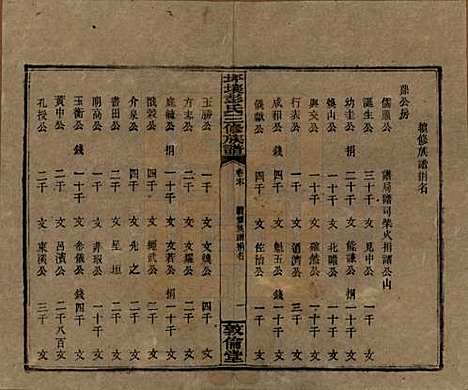 續修族譜捐名
公房
儒顯公 譜局譜司柴火捐譜公山
誕生公 一千 文 見中公 一千 文
幼圭公 捐 一十千 文 能謙公 捐 一千 文
煥山公 一十千 文 北 公 一千 文
與交公 一十千 文 公 一千 文
成相公 錢 一十千 文 魁五公 錢 二千 文
儀獻公 四千 文 佐治公 二千 文
坪壤彭氏三修族譜 卷末 續修族譜捐名 一 敦倫堂
玉勝公 一千 文 公 四千 文
方志公 二千 文 文 公 二千 文
庭毓公 捐 一十千 文 文若公 捐 一十千 文
戩穀公 一十千 文 繩武公 一千 文
介泉公 四千 文 先之 二千 文
書田公 二千 文 星垣 二千 文
南高公 二十千 文 非瑕公 一千 文
玉衡公 錢 一千 文 希儀公 錢 四千 文
黃中公 二千 文 呂濱公 二千八百 文
孔授公 二千 文 東溪公 一千 文